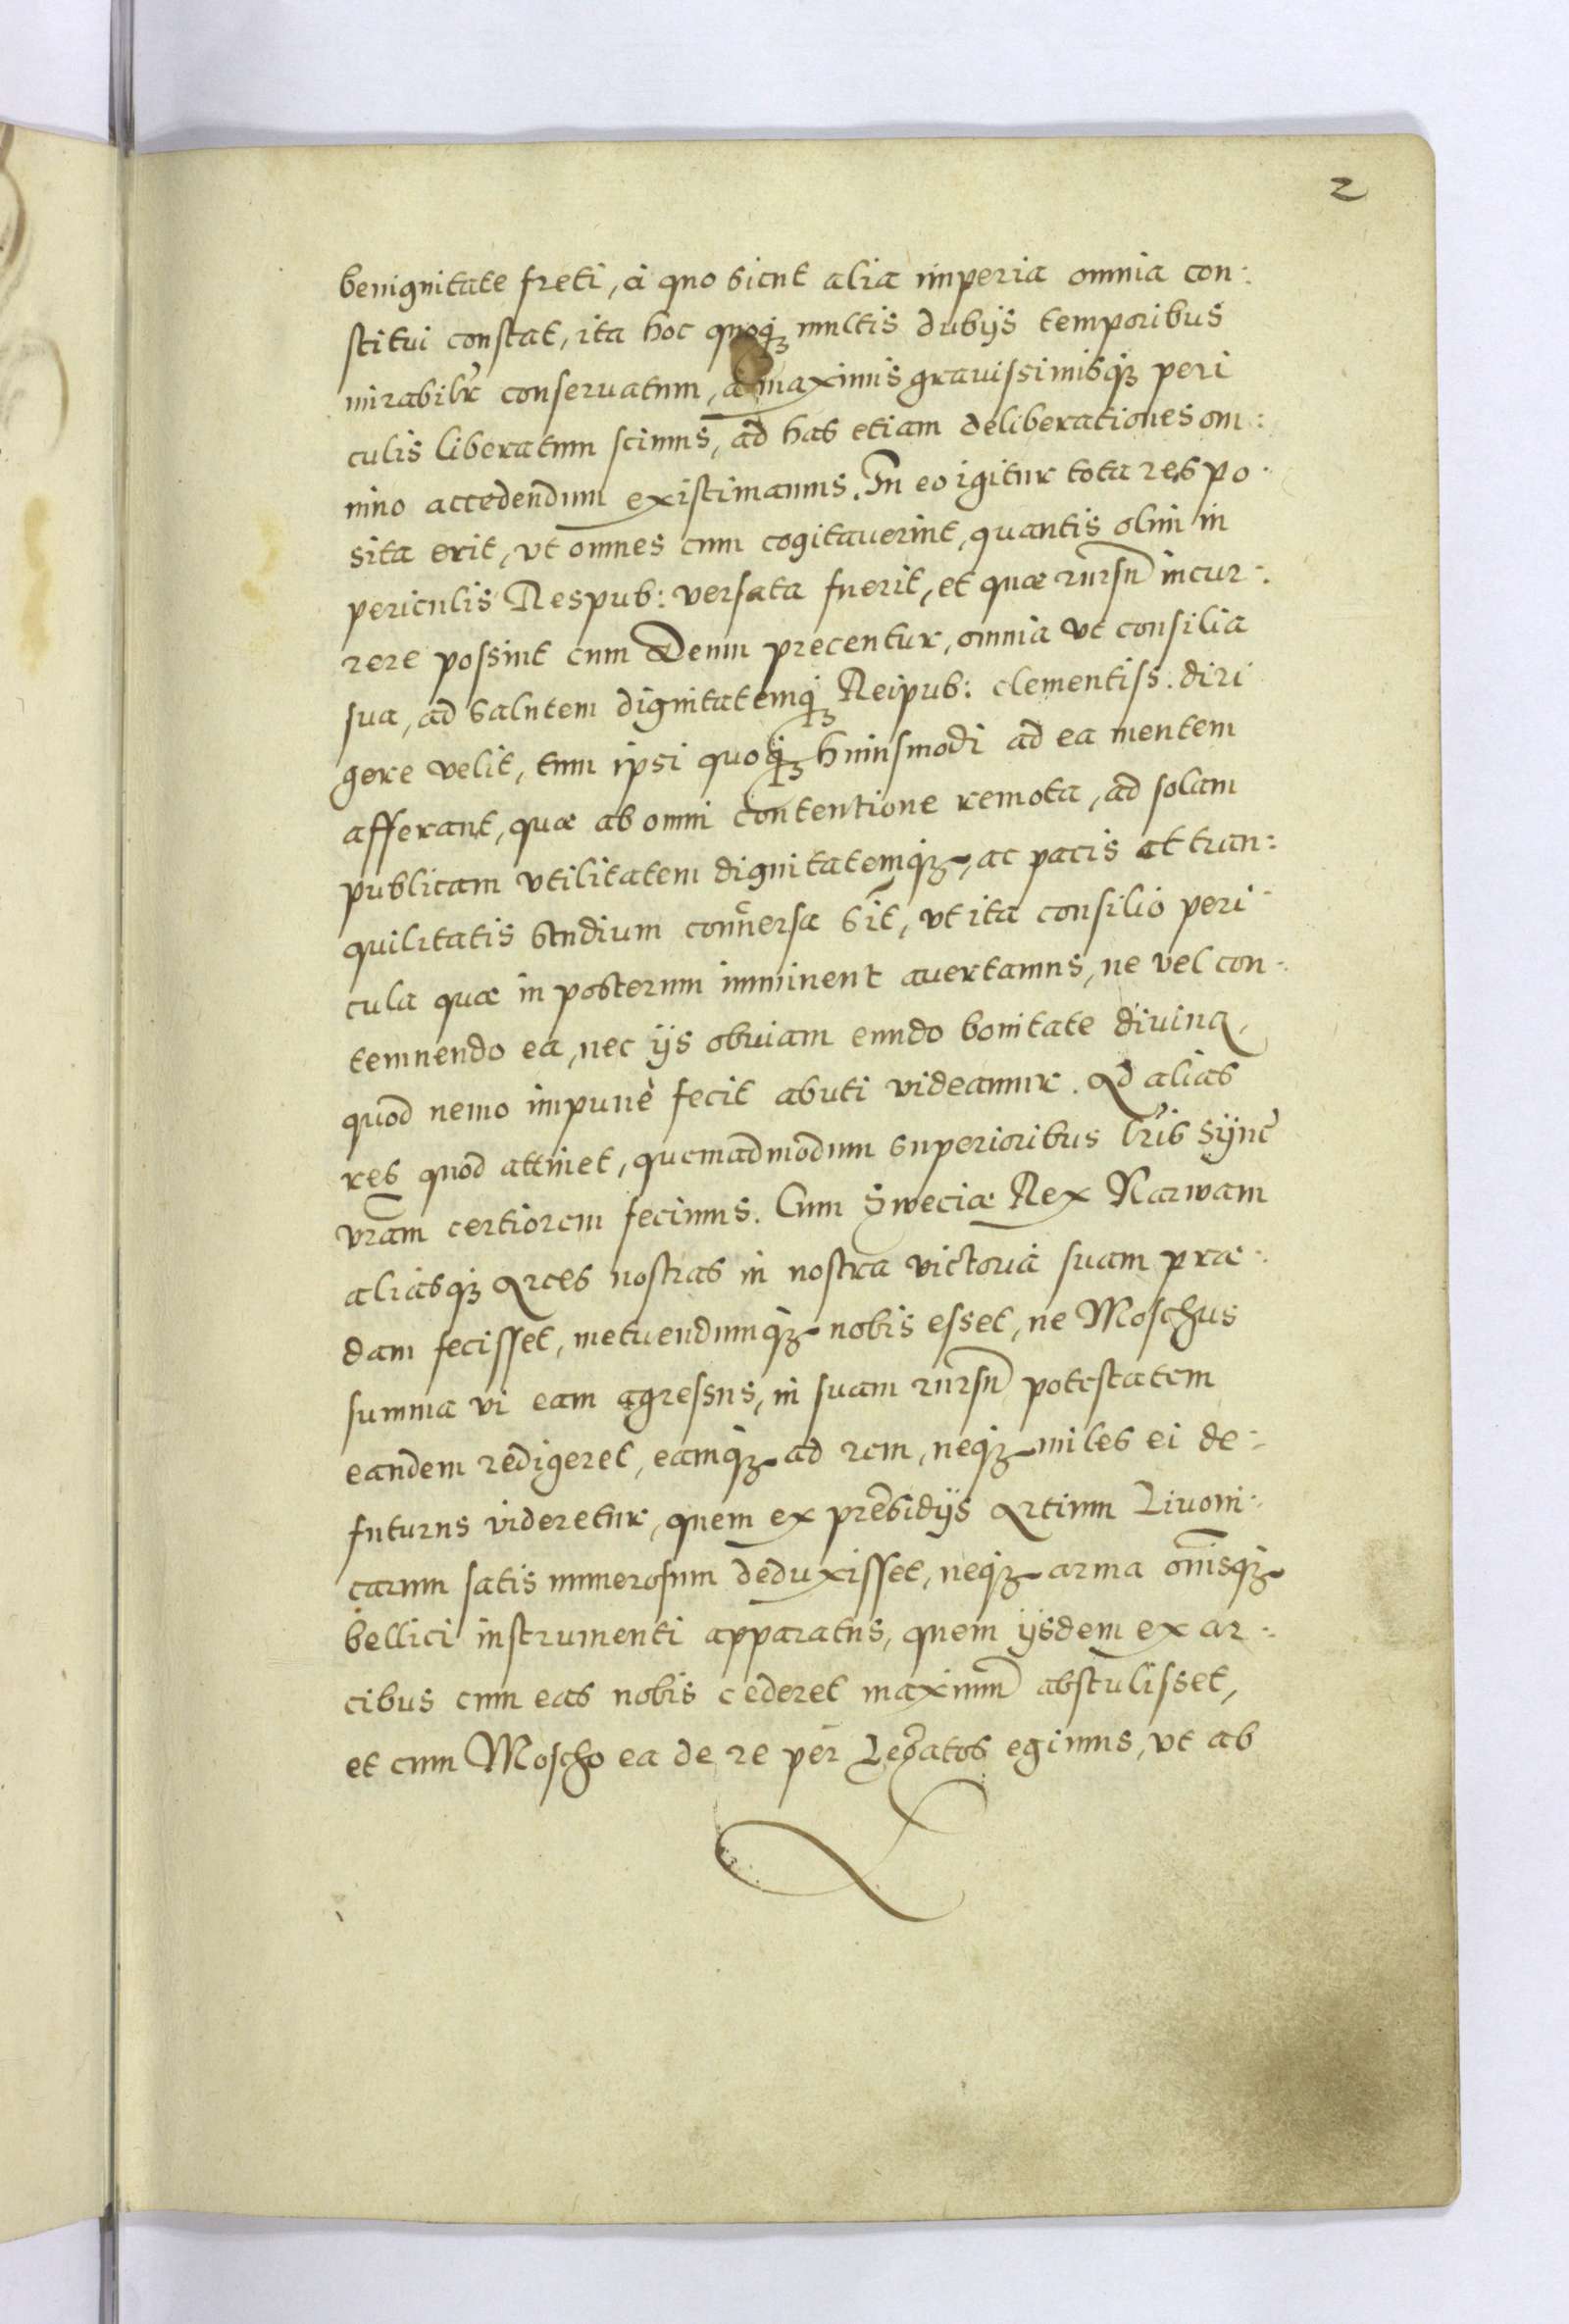 2
benignitate freti, à quo sicut alia imperia omnia con:
stitui constat, ita hoc quoq̃ multis dubijs temporibus
mirabilr̃ conservatum, à maximis gravissimisq̃ peri
culis liberatum scimus, ad has etiam deliberationes om:
nino accedendum existimamus. In eo igitur tota res po:
sita erit, vt omnes cum cogitaverint, quantis olim in
periculis Respub: versata fuerit, et quæ rursũ incur:
rere possint cum Deum precentur, omnia vt consilia
sua, ad salutem dignitatemq̃ Reipub: clementiss. diri
gere velit, tum ipsi quoq̃ huiusmodi ad ea mentem
afferant, quæ ab omni contentione remota, ad solam
publicam vtilitatem dignitatemq̃, ac pacis et tran:
quilitatis studium conversa sit, vt ita consilio peri
cula quæ in posterum imminent avertamus, ne vel con:
temnendo ea, nec ijs obviam eundo bonitate divina,
quod nemo impunè fecit abuti videamur. Ad alias
res quod attinet, quemadmodum superioribus lr̃is Sÿnc̃
vrãm certiorem fecimus. Cum Sweciæ Rex Narwam
aliasq̃ Arces nostras in nostra victoria suam præ:
dam fecisset, metuendumq̃ nobis esset, ne Moschus
summa vi eam agressus, in suam rursũ potestatem
eandem redigeret, eamq̃ ad rem, neq̃ miles ei de:
futurus videretur, quem ex presidijs Artium Livoni:
carum satis numerosum deduxisset, neq̃ arma om̃isq̃
bellici instrumenti apparatus, quem ijsdem ex ar:
cibus cum eas nobis cederet maximũ abstulisset,
et cum Moscho ea de re per Legatos egimus, vt ab